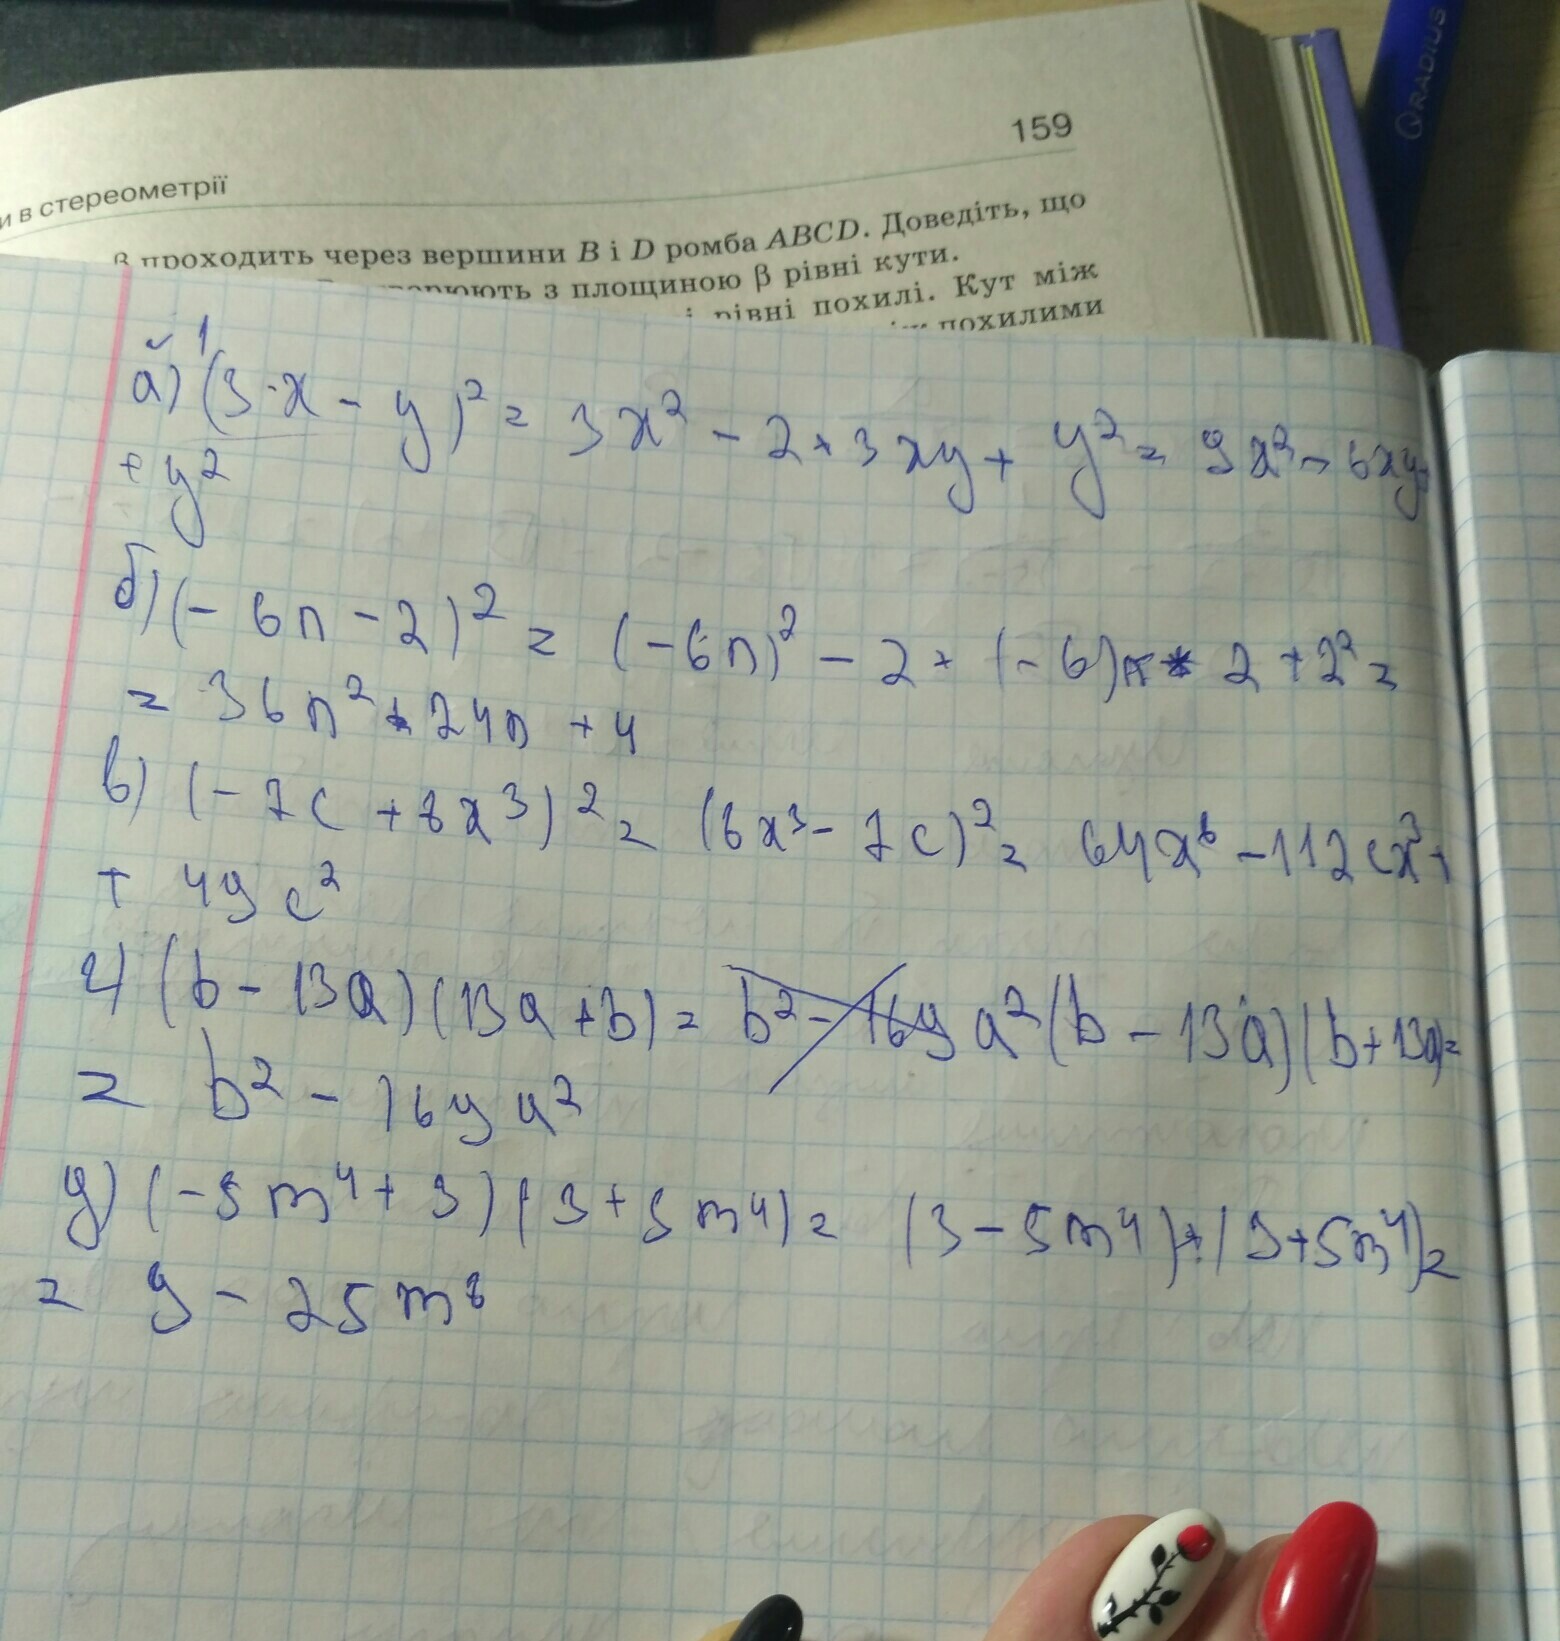 159
и в стереометрії
β проходить через вершини B і D ромба ABCD. Доведіть, що
з площиною β рівні кути.
рівні похилі. Кут між
похилими
QRADIUS
1
а) (3·x - y)² = 3x² - 2*3xy + y² = 9x² - 6xy
+ y²
б) (- 6n - 2)² = (-6n)² - 2 * (-6)n * 2 + 2² =
= 36n² + 24n + 4
в) (- 7c + 8x³)² = (8x³ - 7c)² = 64x⁶ - 112cx³ +
+ 49c²
г) (b - 13a)(13a + b) = (b - 13a)(b + 13a) =
= b² - 169a²
д) (-5m⁴ + 3)(3 + 5m⁴) = (3 - 5m⁴)*(3 + 5m⁴) =
= 9 - 25m⁸